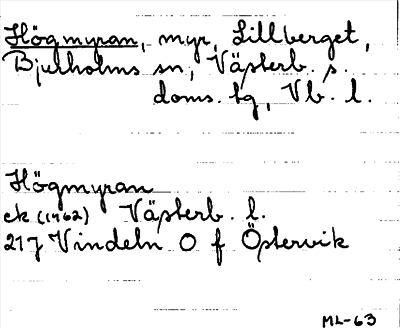 Högmyran, myr, Lillberget,
Bjurholms sn, Västerb. s.
doms. tg, Vb. l.
Högmyran
ek (1962) Västerb. l.
217 Vindeln O f Östervik
ML-63